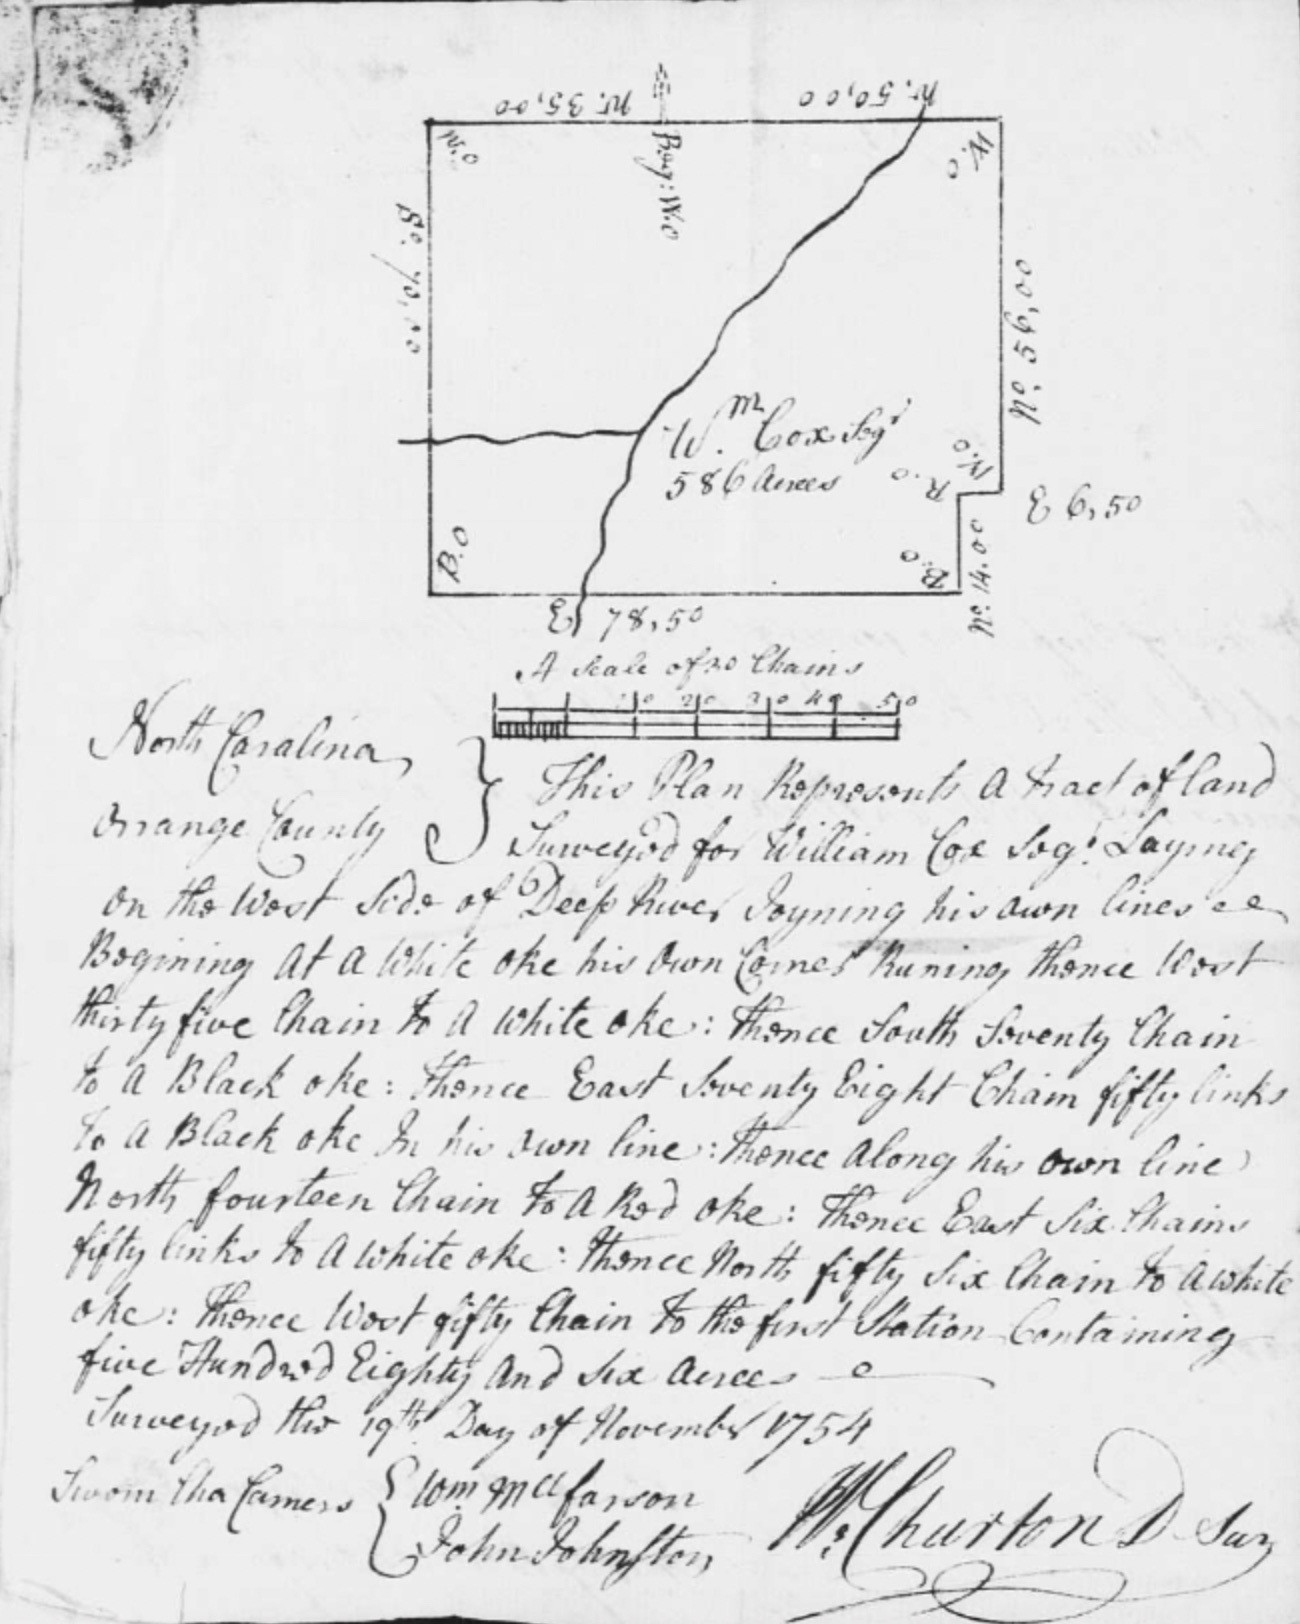 Wt. 35,00
Wt. 50,00
W.O
Beg: W.O
W.O
So. 70,00
No. 56,00
Wm. Cox Segr
586 Acrees
W.O
R.O
E 6,50
B.O
B.O
No. 14.00
E 78,50
A Scale of 20 Chains
10 20 30 40 50
North Caralina
Orrange County
This Plan Represents A tract of land
Surveyed for William Cox Segr. Laying
on the West Side of Deep River Joyning his own lines
Begining At A White oke his own Corner Runing thence West
thirty five Chain to A White oke: thence South Seventy Chain
to A Black oke: thence East Seventy Eight Chain fifty links
to A Black oke In his own line: thence Along his own line
North fourteen Chain to A Red oke: thence East Six Chains
fifty links to A white oke: thence North fifty Six Chain to A white
oke: thence West fifty Chain to the first Station Containing
five Hundred Eighty And Six Acrees
Surveyed this 19th Day of November 1754
Sworn Cha Carriers
Wm. McFarson
John Johnston
W: Churton D Sur